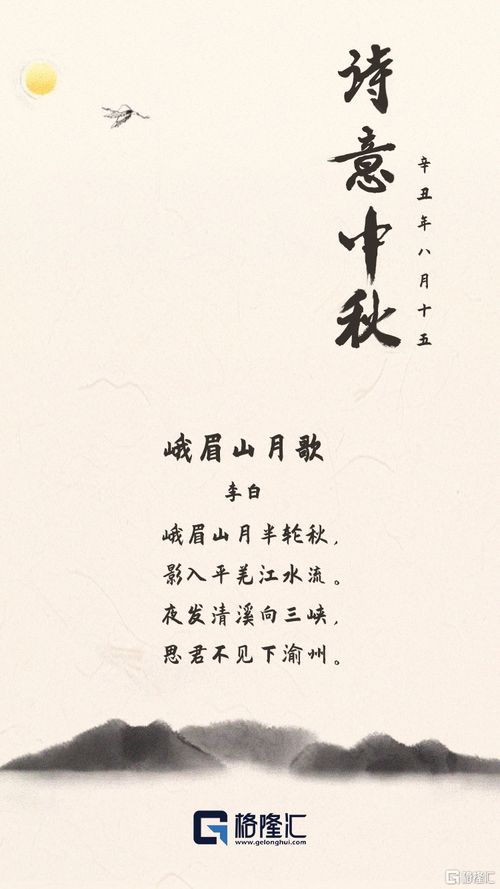 诗意中秋
辛丑年八月十五
峨眉山月歌
李白
峨眉山月半轮秋，
影入平羌江水流。
夜发清溪向三峡，
思君不见下渝州。
格隆汇
www.gelonghui.com
格隆汇